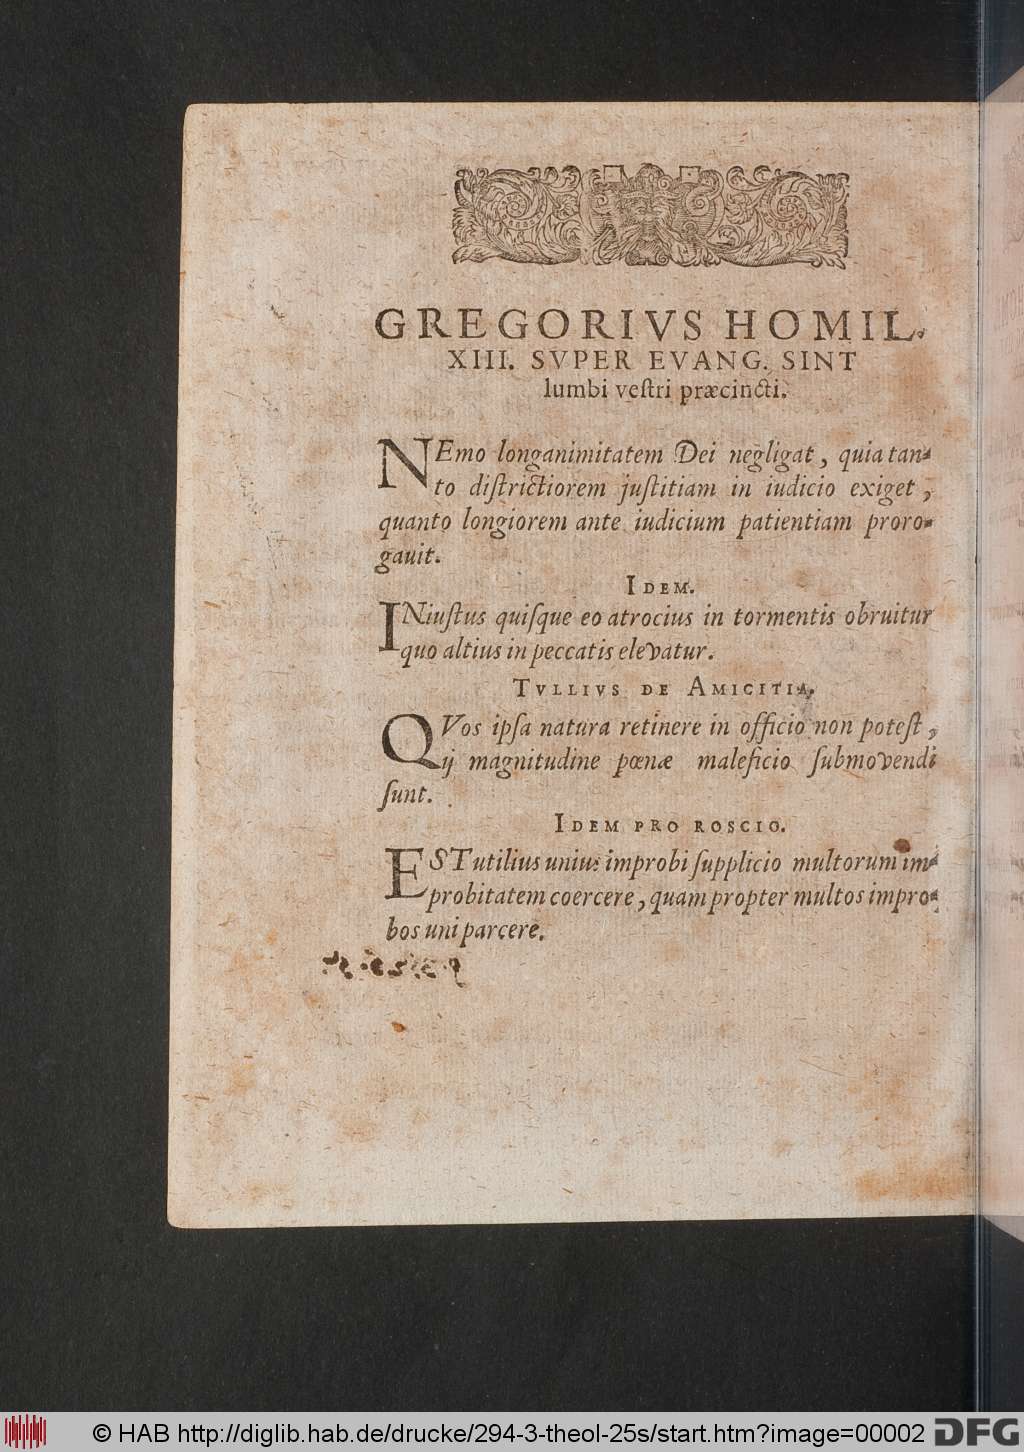 GREGORIVS HOMIL.
XIII. SVPER EVANG. SINT
lumbi veſtri præcincti.
NEmo longanimitatem Dei negligat, quia tan-
to diſtrictiorem juſtitiam in iudicio exiget,
quanto longiorem ante iudicium patientiam proro-
gauit.
IDEM.
INiuſtus quiſque eo atrocius in tormentis obruitur
quo altius in peccatis elevatur.
TVLLIVS DE AMICITIA.
QVos ipſa natura retinere in officio non poteſt,
ij magnitudine pœnæ maleficio ſubmovendi
ſunt.
IDEM PRO ROSCIO.
EST utilius unius improbi ſupplicio multorum im-
probitatem coercere, quam propter multos impro-
bos uni parcere.
© HAB http://diglib.hab.de/drucke/294-3-theol-25s/start.htm?image=00002
DFG